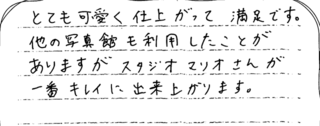 とても可愛く仕上がって 満足です。
他の写真館も利用したことが
ありますがスタジオマリオさんが
一番キレイに出来上がります。